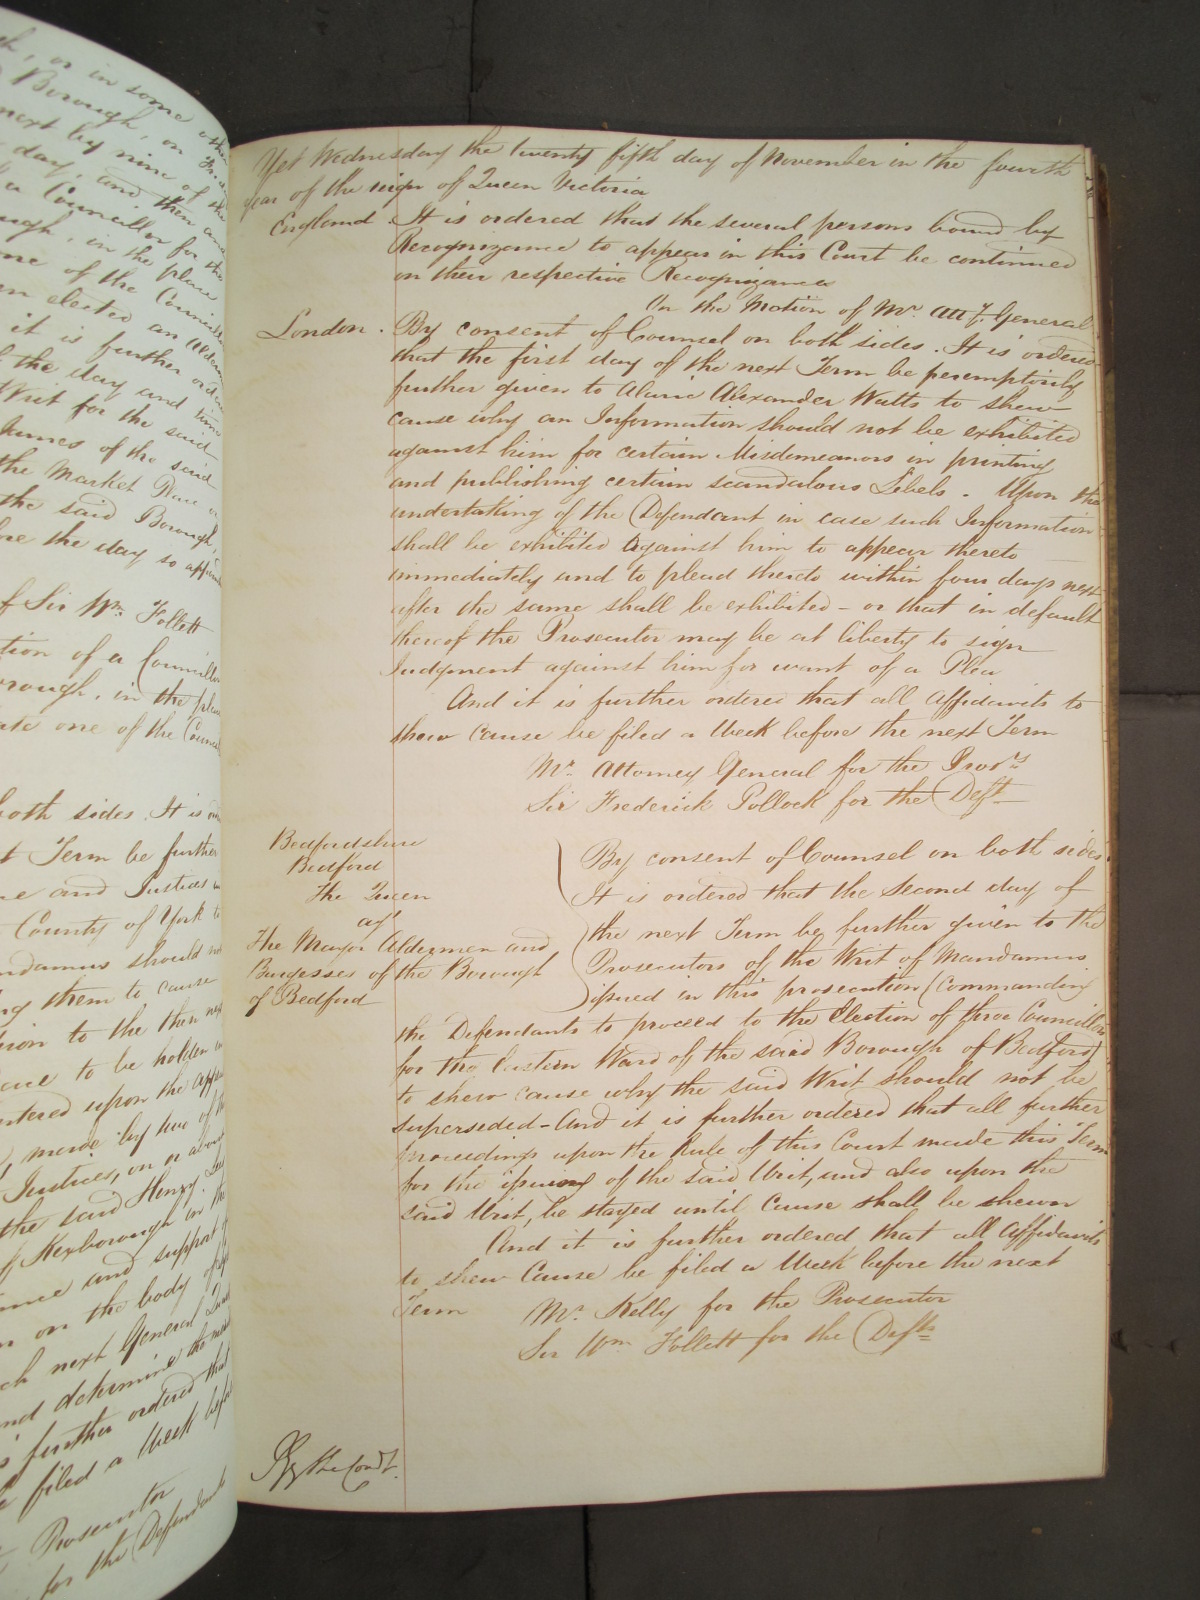 gh, or in some other
Borough, on Fri
next by nine of the
day, and then and
a Councillor for the
ough, in the place
one of the Council
en elected an Alder
it is further order
the day and time
Writ for the said
James of the said
the Market Place
the said Borough,
ore the day so appoin
of Sir Wm. Follett
tion of a Councillor
rough, in the place
ate one of the Counci
both sides. It is or
t Term be further
ce and Justices
County of York to
ndamus should not
ng them to cause
sion to the then next
eace to be holden in
ntered upon the appe
made by two of the
Justices, on or about
the said Henry
of Mexborough in the
ance and support
on the body of
ch next General Quar
nd determine the
s further ordered that
e filed a Week befo
Prosecutor
for the Defendants
Yet Wednesday the twenty fifth day of November in the fourth
year of the reign of Queen Victoria
England. It is ordered that the several persons bound by
Recognizance to appear in this Court be continued
on their respective Recognizances
On the Motion of Mr. Atty. General
London. By consent of Counsel on both sides. It is ordered
that the first day of the next Term be peremptorily
further given to Alaric Alexander Watts to shew
cause why an Information should not be exhibited
against him for certain Misdemeanors in printing
and publishing certain scandalous Libels. Upon the
undertaking of the Defendant in case such Information
shall be exhibited against him to appear thereto
immediately and to plead thereto within four days next
after the same shall be exhibited - or that in default
thereof the Prosecutor may be at liberty to sign
Judgment against him for want of a Plea
And it is further ordered that all affidavits to
shew cause be filed a Week before the next Term
Mr. Attorney General for the Pros.rs
Sir Frederick Pollock for the Deft
Bedfordshire
Bedford
The Queen
agt
The Mayor Aldermen and
Burgesses of the Borough
of Bedford
By consent of Counsel on both sides.
It is ordered that the Second day of
the next Term be further given to the
Prosecutors of the Writ of Mandamus
issued in this prosecution (Commanding
the Defendants to proceed to the Election of three Councillors
for the Eastern Ward of the said Borough of Bedford)
to shew cause why the said Writ should not be
superseded - And it is further ordered that all further
proceedings upon the Rule of this Court made this Term
for the issuing of the said Writ, and also upon the
said Writ, be stayed until Cause shall be shewn
And it is further ordered that all affidavits
to shew Cause be filed a Week before the next
Term Mr. Kelly for the Prosecutor
Sir Wm. Follett for the Defts
By the Court.